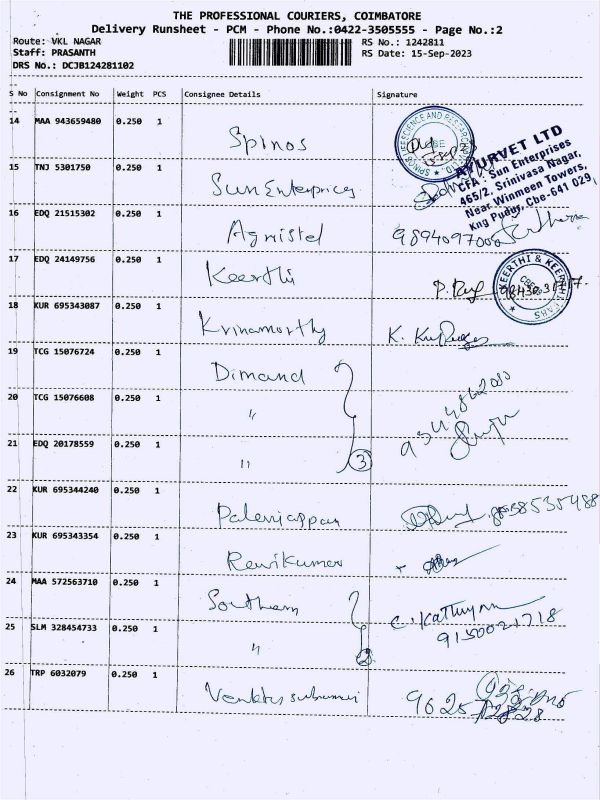 THE PROFESSIONAL COURIERS, COIMBATORE
Delivery Runsheet - PCM - Phone No.:0422-3505555 - Page No.:2
Route: VKL NAGAR RS No.: 1242811
Staff: PRASANTH RS Date: 15-Sep-2023
DRS No.: DCJB124281102
S No Consignment No Weight PCS Consignee Details Signature
14 MAA 943659480 0.250 1 Spinos
15 TNJ 5301750 0.250 1 Sun Enterprices
AYURVET LTD
CFA : Sun Enterprises
465/2. Srinivasa Nagar,
Near Winmeen Towers,
Kng Pudur, Cbe-641 029,
16 EDQ 21515302 0.250 1 Agristel 9894097000
17 EDQ 24149756 0.250 1 Keerthi
KEERTHI & KEERTHI LABS
18 KUR 695343087 0.250 1 Krinamorthy
19 TCG 15076724 0.250 1 Dimand
20 TCG 15076608 0.250 1 "
21 EDQ 20178559 0.250 1 " 3
22 KUR 695344240 0.250 1 Paleniappan
23 KUR 695343354 0.250 1 Ravikumar
24 MAA 572563710 0.250 1 Southern
25 SLM 328454733 0.250 1 " 2 9150021718
26 TRP 6032079 0.250 1